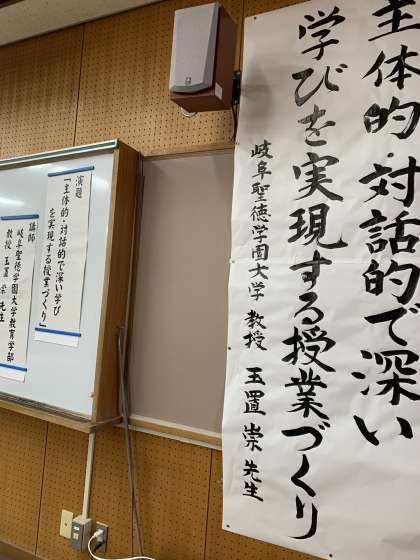 主体的・対話的で深い
学びを実現する授業づくり
岐阜聖徳学園大学 教授 玉置 崇 先生
演題
「主体的・対話的で深い学び
を実現する授業づくり」
講師
岐阜聖徳学園大学教育学部
教授 玉置 崇 先生